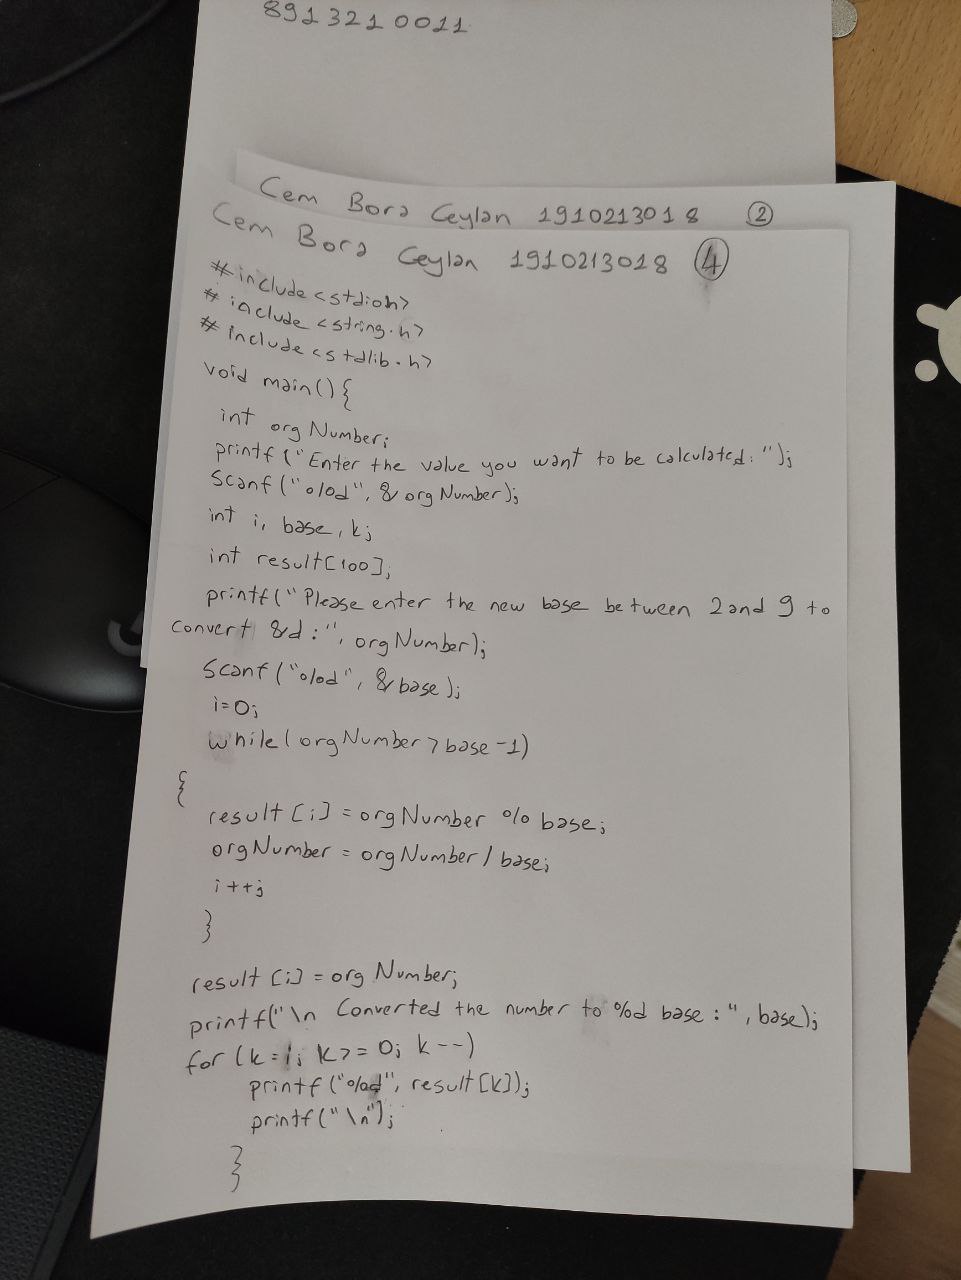 8913210011
Cem Bora Ceylan 1910213018 2
Cem Bora Ceylan 1910213018 4
#include <stdioh>
#include <string.h>
#include <stdlib.h>
void main(){
int orgNumber;
printf("Enter the value you want to be calculated: ");
scanf("%d", &orgNumber);
int i, base, k;
int result[100];
printf("Please enter the new base between 2 and 9 to
convert &d:", orgNumber);
scanf("%d", &base);
i=0;
while(orgNumber>base-1)
{
result[i]=orgNumber % base;
orgNumber = orgNumber / base;
i++;
}
result[i]=orgNumber;
printf("\n Converted the number to %d base : ", base);
for (k=i; k>=0; k--)
printf("%d", result[k]);
printf("\n");
}